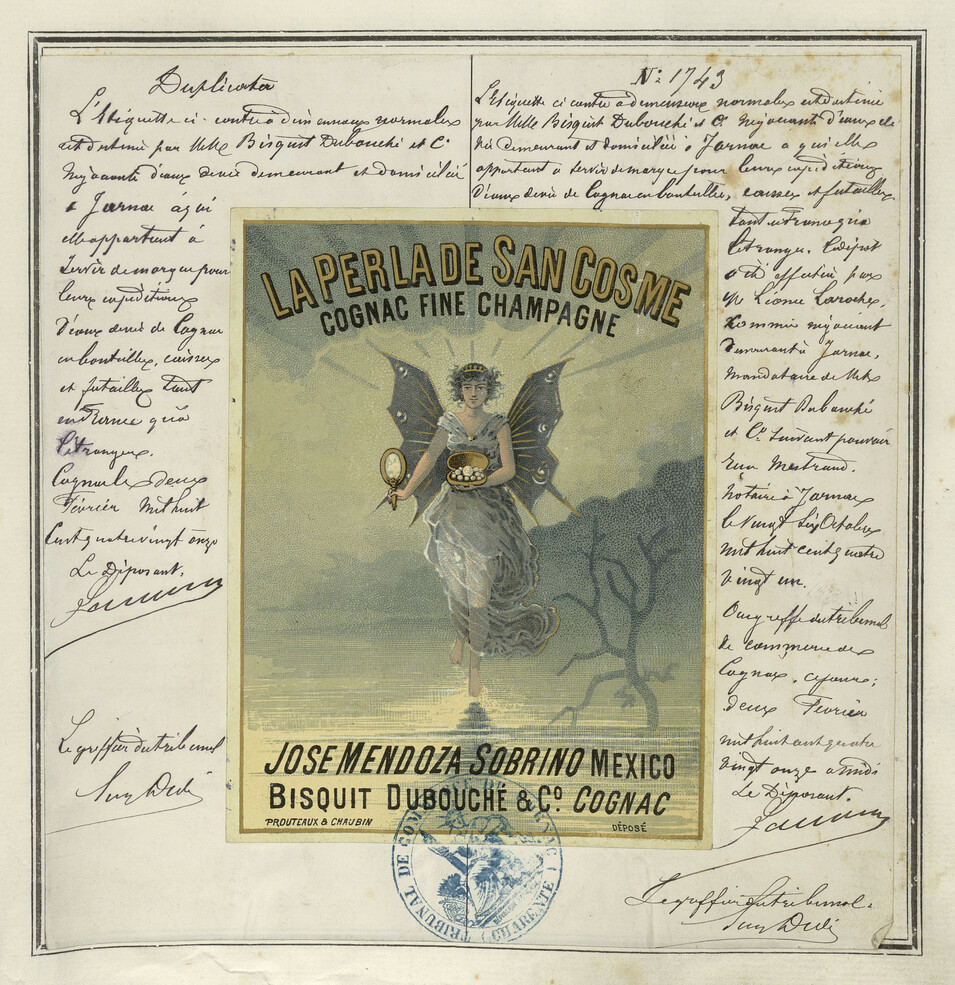 Duplicata
L'Etiquette ci-contre à dimensions normales
est destinée par MMrs Bisquit Dubouché et Cie
négociants d'eaux de vie demeurant et domiciliés
à Jarnac à qui
elle appartient à
servir de marque pour
leurs expéditions
d'eaux de vie de Cognac
en bouteilles, caisses
et futailles tant
en France qu'à
l'étranger.
Cognac le deux
Février mil huit
cent quatre vingt onze
Le Déposant,
Le greffier du tribunal
N° 1743
L'Etiquette ci contre à dimensions normales est destinée
par MMrs Bisquit Dubouché et Cie négociants d'eaux de
vie demeurant et domiciliés à Jarnac à qui elle
appartient à servir de marque pour leurs expéditions
d'eaux de vie de Cognac en bouteilles, caisses et futailles
tant en France qu'à
l'étranger. Ce dépôt
a été effectué par
Mr Léonce Laroche,
Commis négociant
demeurant à Jarnac,
mandataire de MMrs
Bisquit Dubouché
et Cie suivant pouvoir
notaire à Jarnac
le vingt six Octobre
mil huit cent quatre
vingt un.
Au greffe du tribunal
de commerce de
Cognac, ce jour;
deux Février
mil huit cent quatre
vingt onze à midi
Le Déposant.
Le greffier du tribunal.
LA PERLA DE SAN COSME
COGNAC FINE CHAMPAGNE
JOSE MENDOZA SOBRINO MEXICO
BISQUIT DUBOUCHÉ & Co. COGNAC
PROUTEAUX & CHAUBIN
DÉPOSÉ
TRIBUNAL DE COMMERCE DE COGNAC (CHARENTE)